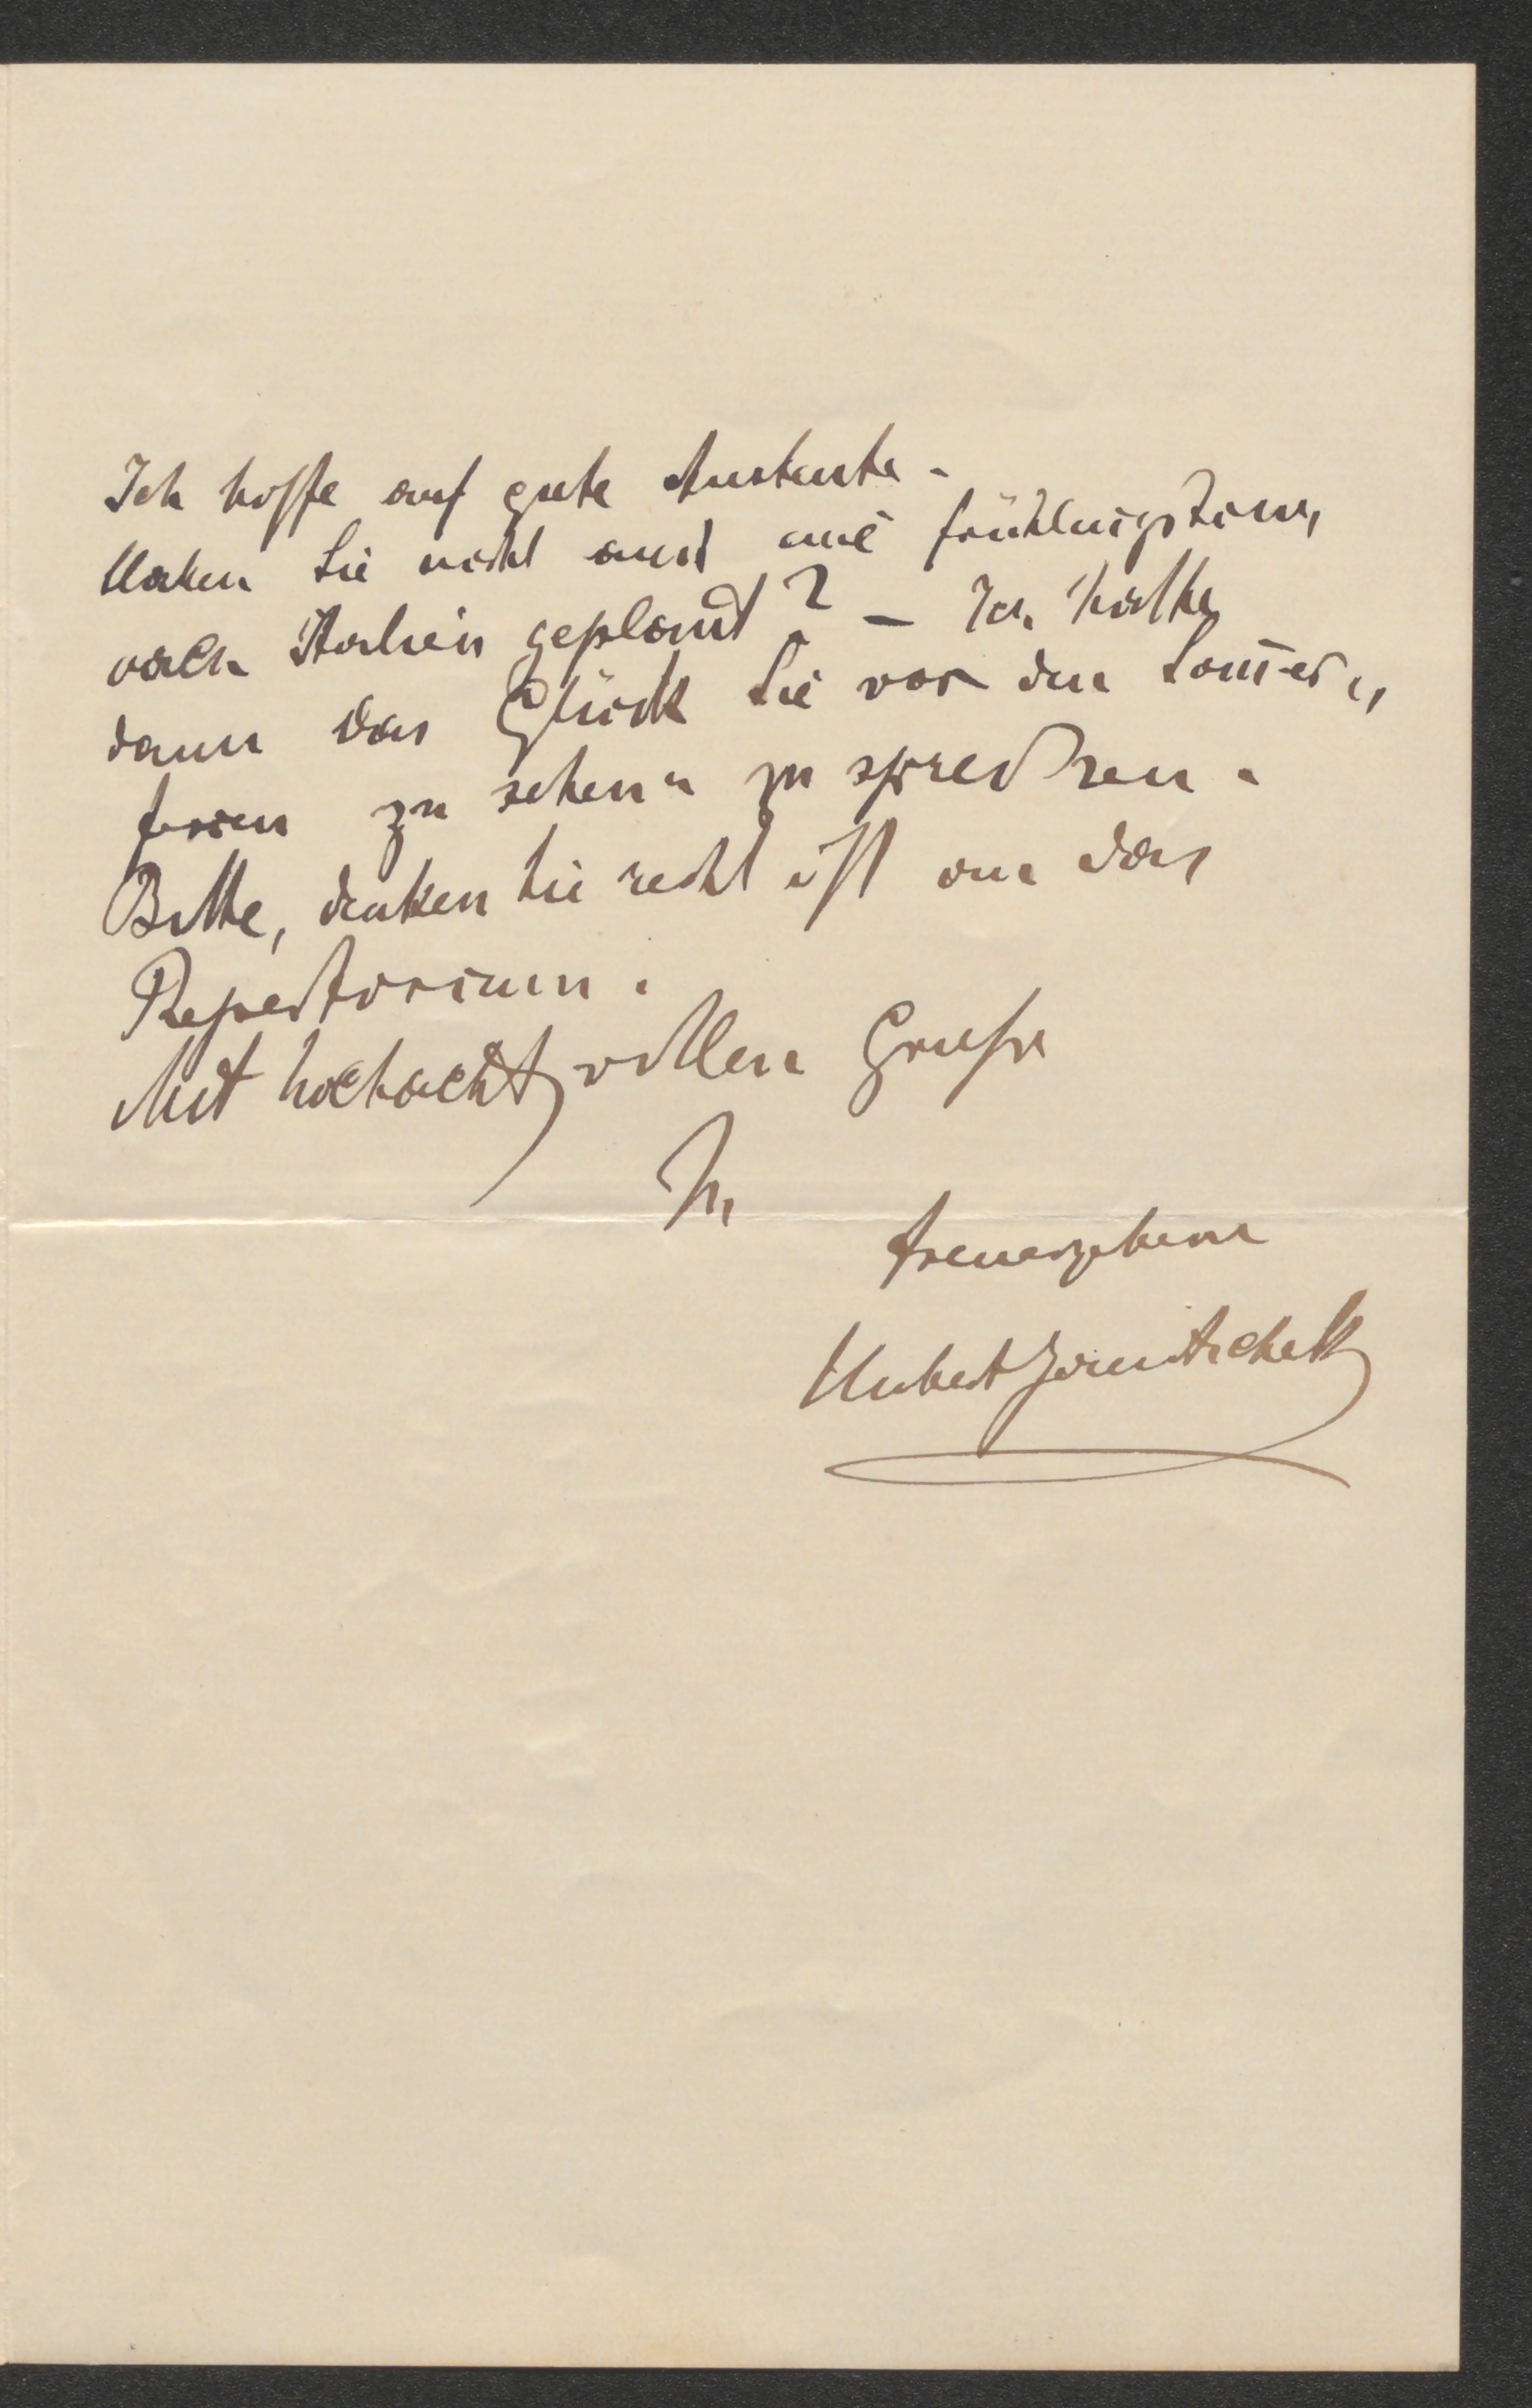 Ich hoffe auf gute Ausbeute.
Haben Sie nicht auch eine Frühlingstour
nach Italien geplant? – Ich hätte
dann das Glück Sie vor den Som̅er„
ferien zu sehen u zu sprechen.
Bitte, denken Sie recht oft an das
Repertorium.
Mit hochachtgvollen Gruße
Ihr
treuergebener
Hubert Janitschek